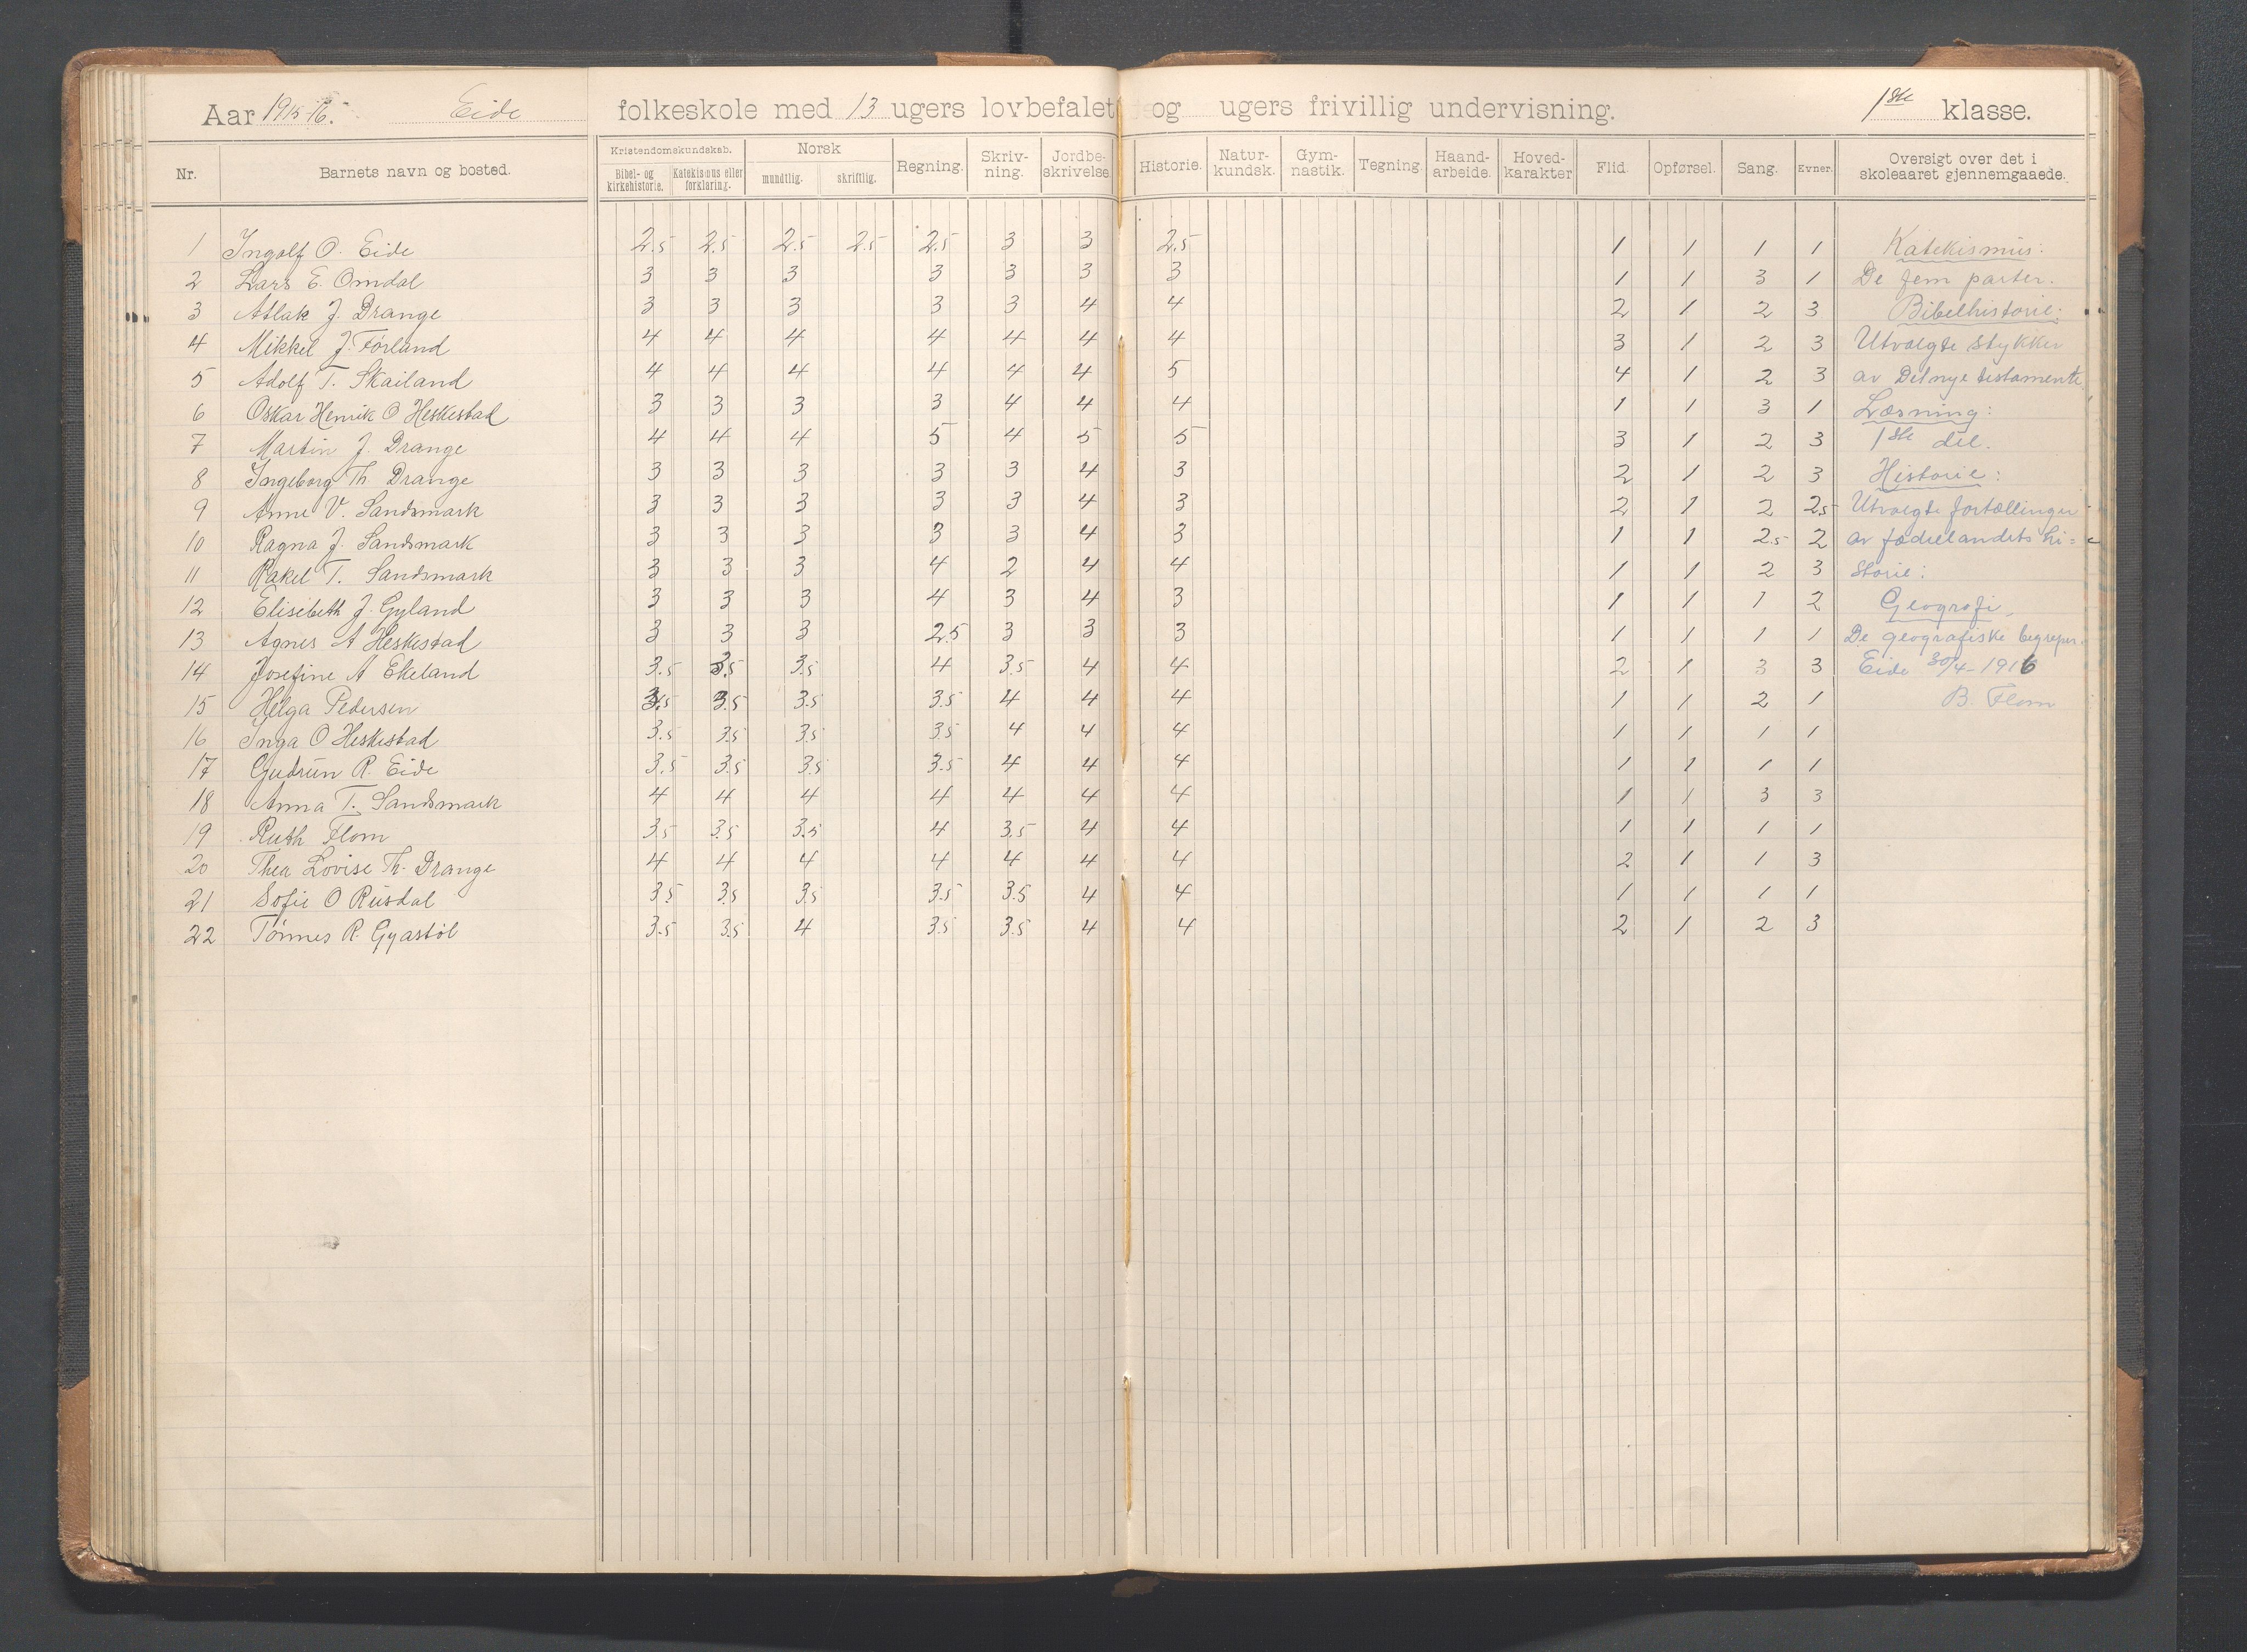 Aar 1915-16. Eide folkeskole med 13 ugers lovbefalet og ugers frivillig undervisning. 1ste klasse.
Nr. Barnets navn og bosted. Kristendomskundskab. Bibel- og kirkehistorie. Katekismus eller forklaring. Norsk mundtlig. skriftlig. Regning. Skriv-ning. Jordbe-skrivelse. Historie. Natur-kundsk. Gym-nastik. Tegning. Haand-arbeide. Hoved-karakter Flid. Opførsel. Sang. Evner. Oversigt over det i skoleaaret gjennemgaaede.
1 Ingolf O. Eide 2.5 2.5 2.5 2.5 2.5 3 3 2.5 1 1 1 1 Katekismus:
2 Lars E. Omdal 3 3 3 3 3 3 3 1 1 3 1 De fem parter.
3 Atlak J. Drange 3 3 3 3 3 4 4 2 1 2 3 Bibelhistorie:
4 Mikkel J. Førland 4 4 4 4 4 4 4 3 1 2 3 Utvalgte stykker
5 Adolf T. Skailand 4 4 4 4 4 4 5 4 1 2 3 av Det nye testamente.
6 Oskar Henrik O Heskestad 3 3 3 3 4 4 4 1 1 3 1 Læsning:
7 Martin J. Drange 4 4 4 5 4 5 5 3 1 2 3 1ste del.
8 Ingeborg Th. Drange 3 3 3 3 3 4 3 2 1 2 3 Historie:
9 Anne V. Sandsmark 3 3 3 3 3 4 3 2 1 2 2.5 Utvalgte fortællinger
10 Ragna J. Sandsmark 3 3 3 3 3 4 3 1 1 2.5 2 av fædrelandets hi=
11 Rakel T. Sandsmark 3 3 3 4 2 4 4 1 1 2 3 storie:
12 Elisebeth J. Gyland 3 3 3 4 3 4 3 1 1 1 2 Geografi,
13 Agnes A Heskestad 3 3 3 2.5 3 3 3 1 1 1 1 De geografiske begreper.
14 Josefine A Ekeland 3.5 3.5 3.5 4 3.5 4 4 2 1 3 3 Eide 30/4-1916
15 Helga Pedersen 3.5 3.5 3.5 3.5 4 4 4 1 1 2 1 B. Flom
16 Inga O Heskestad 3.5 3.5 3.5 3.5 4 4 4 1 1 1 1
17 Gudrun R. Eide 3.5 3.5 3.5 3.5 4 4 4 1 1 1 1
18 Anna T. Sandsmark 4 4 4 4 4 4 4 1 1 3 3
19 Ruth Flom 3.5 3.5 3.5 4 3.5 4 4 1 1 1 1
20 Thea Lovise Th. Drange 4 4 4 4 4 4 4 2 1 1 3
21 Sofie O Rusdal 3.5 3.5 3.5 3.5 3.5 4 4 1 1 1 1
22 Tønnes R. Gyastøl 3.5 3.5 4 3.5 3.5 4 4 2 1 2 3